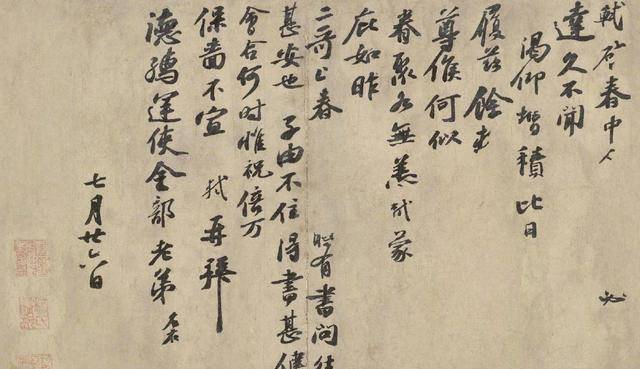 軾啓春中 必
達久不聞
渴仰增積比日
履茲餘
尊候何似
眷聚各無恙軾蒙
庇如昨
二哥上春 時有書問往
甚安也子由不住得書甚健
會合何時惟祝倍万
保嗇不宣 軾再拜
德孺運使金部老弟
七月廿六日